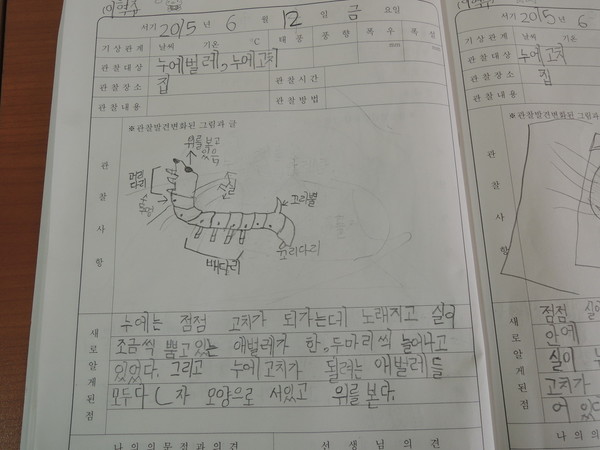 서기 2015 년 6 월 12 일 금 요일
서기 2015 년 6
기상관계 날씨 기온 ℃ 태풍 풍향 폭우 mm 폭설 mm
기상관계 날씨 기온
관찰대상 누에벌레, 누에고치
관찰대상 누에고치
관찰장소 집 관찰시간
관찰장소 집
관찰내용 관찰방법
관찰내용
※관찰발견변화된 그림과 글
※관찰발견변화된 그림과
관찰사항
위를보고
있음
꼬리뿔
배다리
꼬리다리
관찰사항
새로알게된점
누에는 점점 고치가 되가는데 노래지고 실이
조금씩 뿜고있는 애벌레가 한, 두마리씩 늘어나고
있었다. 그리고 누에고치가 될려는 애벌레들
모두다 ㄴ자 모양으로 서있고 위를 본다.
새로알게된점
점점 실이
안에
실이
고치가
어 있다
나의의문점과의견 선생님의견
나의의